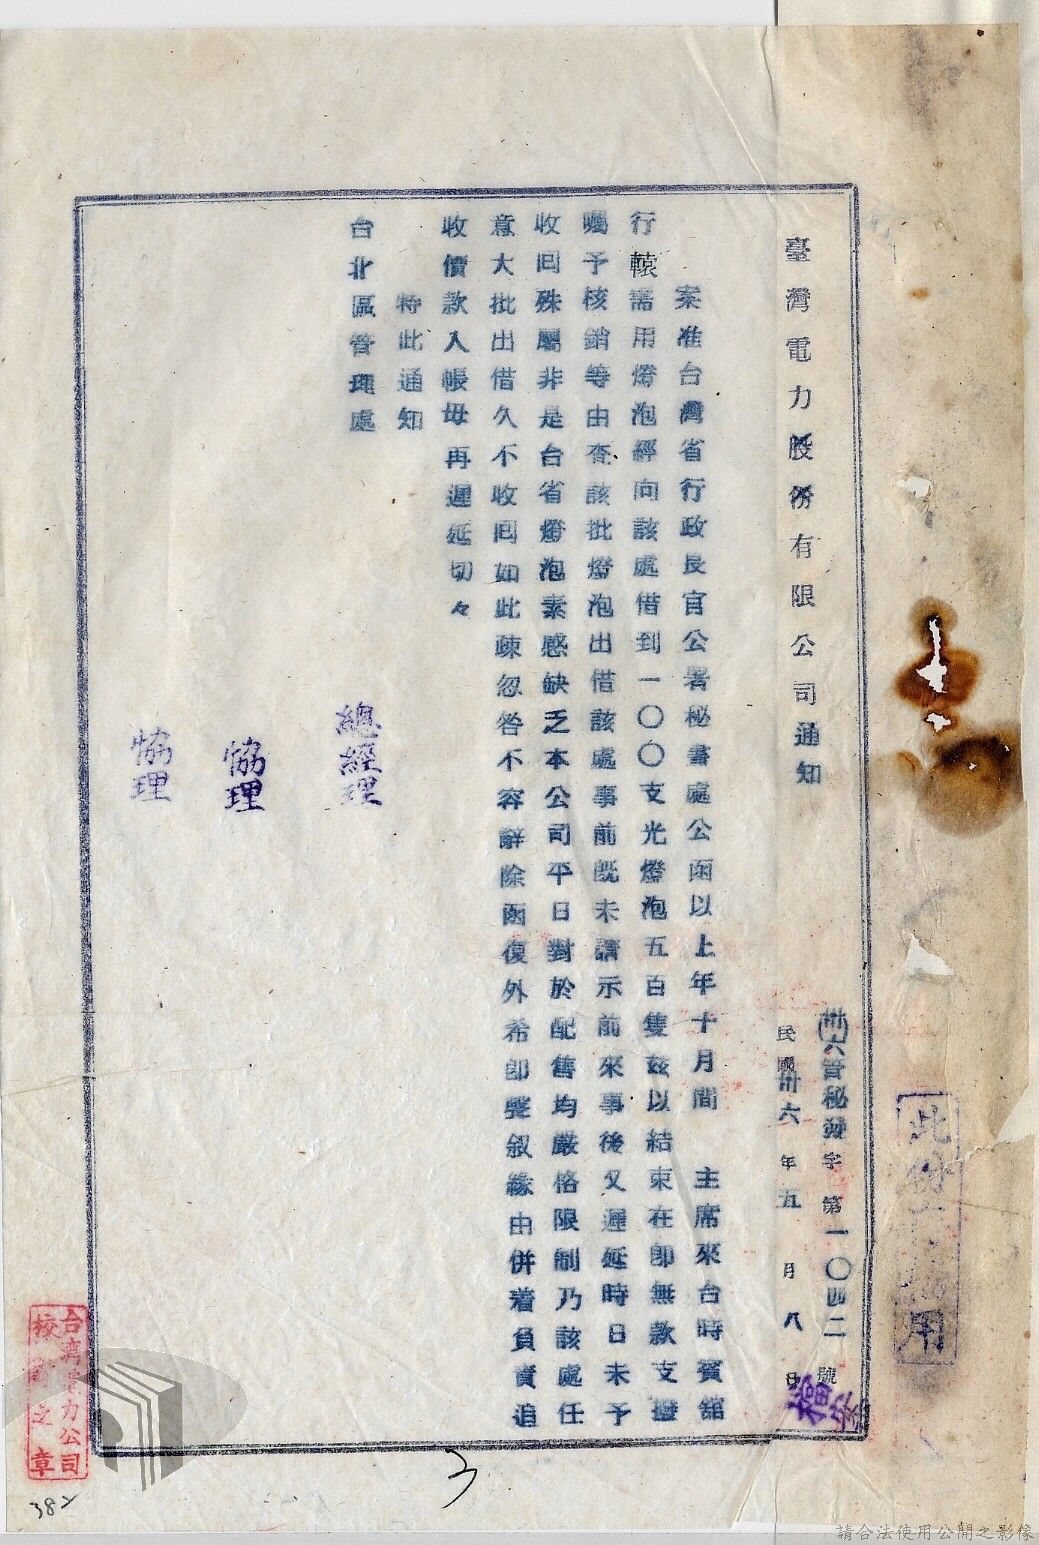 臺灣電力股份有限公司通知
卅六管秘發字第一〇四二號
民國卅六年五月八日
案准台灣省行政長官公署秘書處公函以上年十月間 主席來台時賓舘
行轅需用燈泡經向該處借到一〇〇支光燈泡五百隻茲以結束在即無款支撥
囑予核銷等由查該批燈泡出借該處事前既未請示前來事後又遲延時日未予
收回殊屬非是台省燈泡素感缺乏本公司平日對於配售均嚴格限制乃該處任
意大批出借久不收回如此疎忽咎不容辭除函復外希即聲叙緣由併着負責追
收價款入帳毋再遲延切々
特此通知
台北區管理處
總經理
協理
協理
此份 用
台灣電力公司
校 之章
382
請合法使用公開之影像